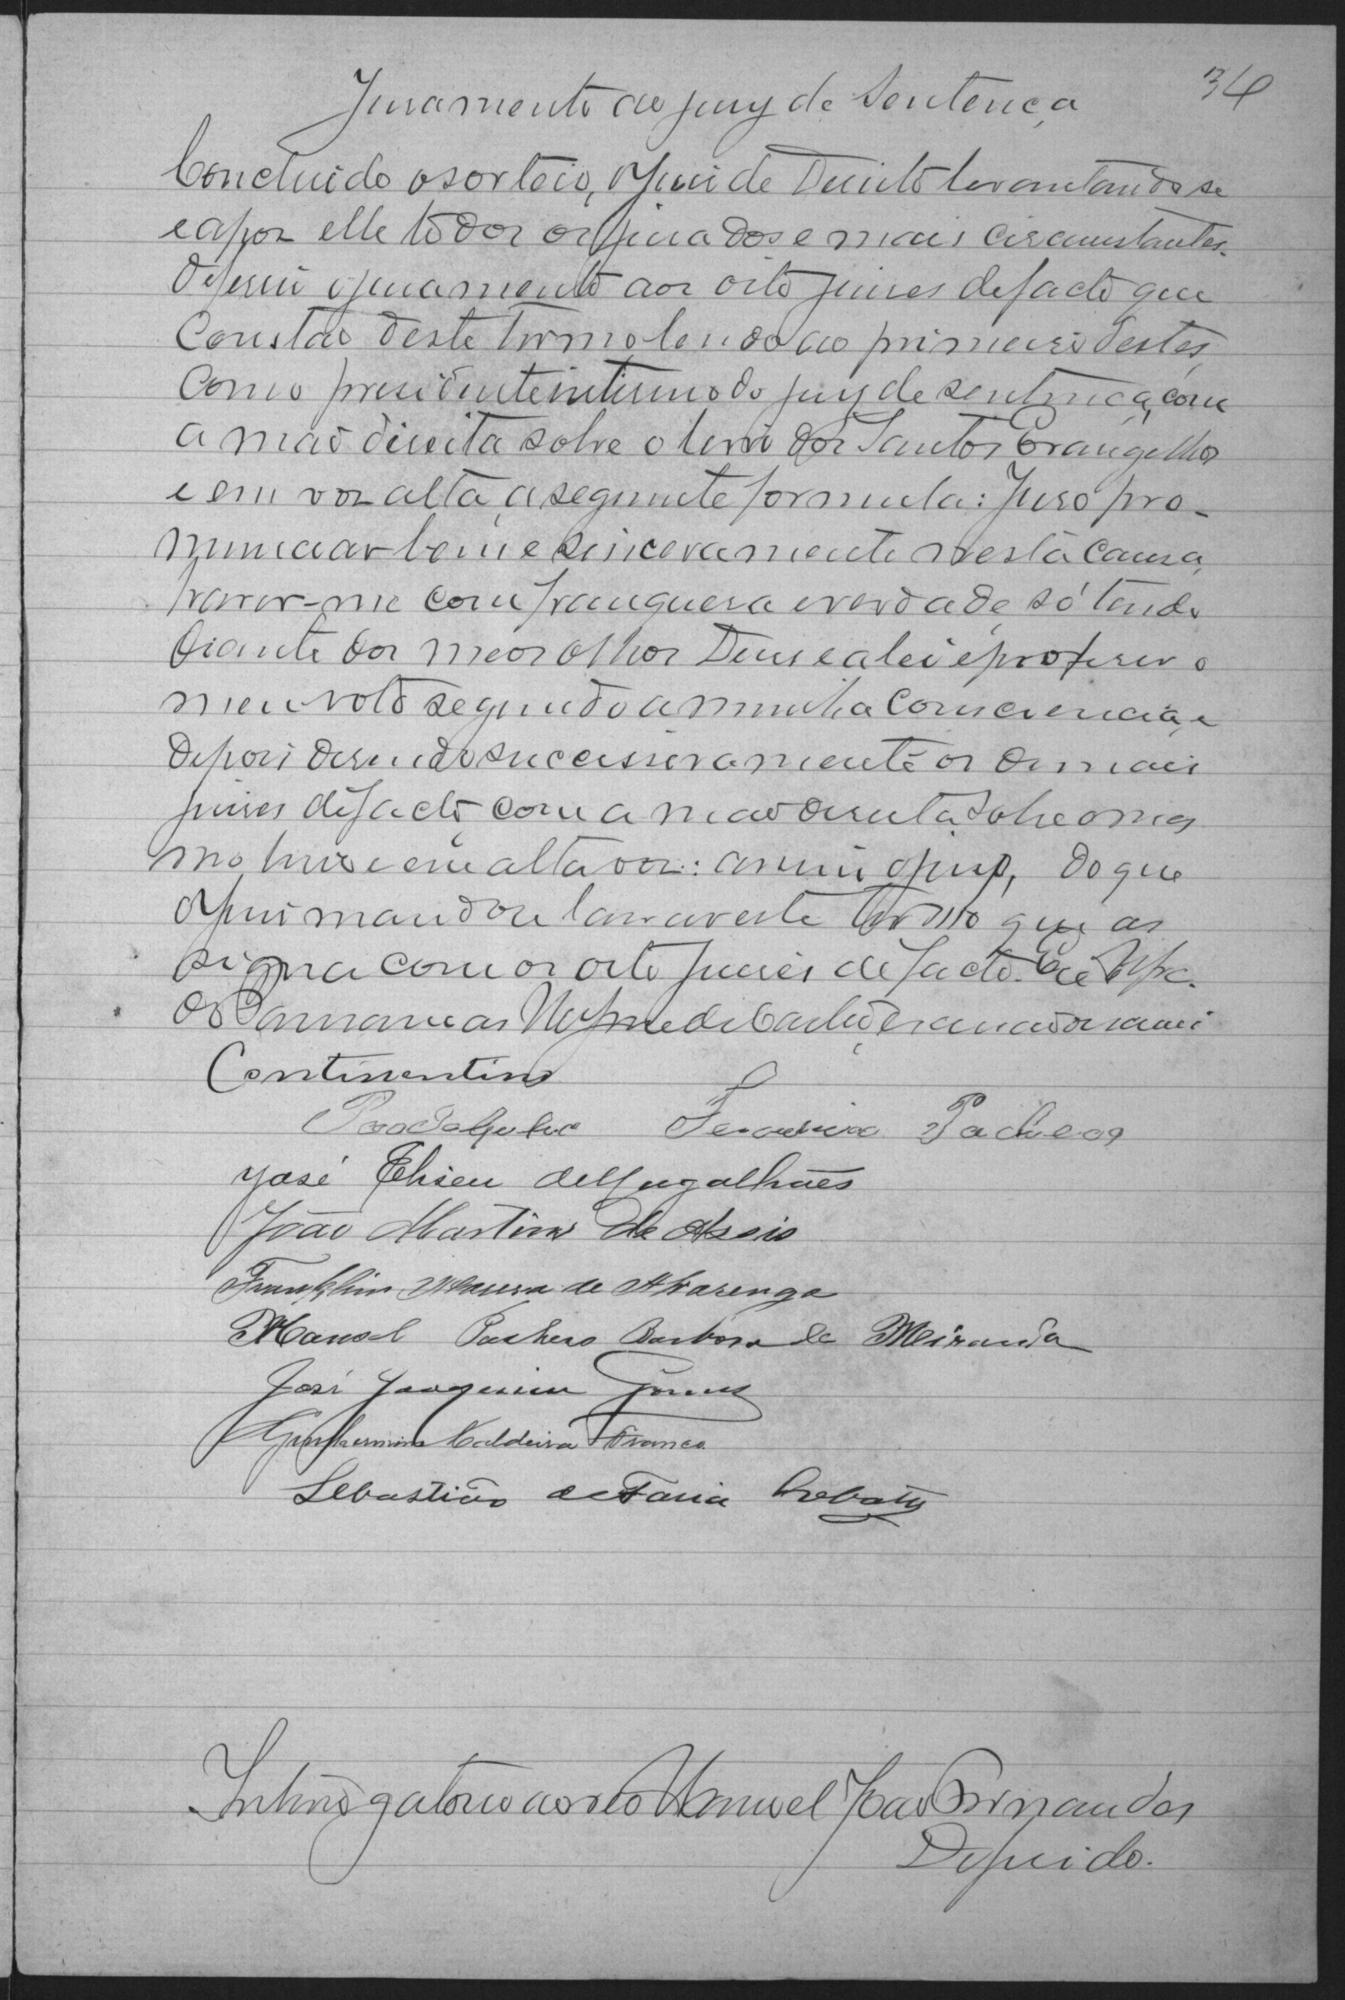 34
Juramento ao jury de Sentença
Concluido o sorteio, o Juiz de Direito levantando se
e apoz elle todos os jurados e mais circumstantes.
deferiu o juramento aos oito juizes de facto que
constão deste termo lendo ao primeiro destes,
como presidente interino do jury de sentença, com
a mão direita sobre o livro dos Santos Evangelhos
e em voz alta, a seguinte formula: Juro pro-
nunciar bem e sinceramente nesta causa,
haver-me com franqueza e verdade, só tendo
diante dos meos olhos Deus e a lei e proferir o
meu voto segundo a minha consciencia, e
depois dizendo successivamente os demais
juizes de facto, com a mão direita sobre o mes
mo livro e em alta voz: assim o juro, do que
o Juiz mandou lavrar este termo que as
signa com os oito juizes de facto. Eu
escrivão o escrevi
Continentino
Ferreira Pacheco
José Eliseu de Magalhães
João Martins de Assis
Franklin Moura de Alvarenga
Manoel Pacheco Barbosa de Miranda
José Joaquim Gomes
Guilhermino Caldeira Franco
Sebastião de Faria Lobato
Interrogatorio ao reo Manoel João Fernandes